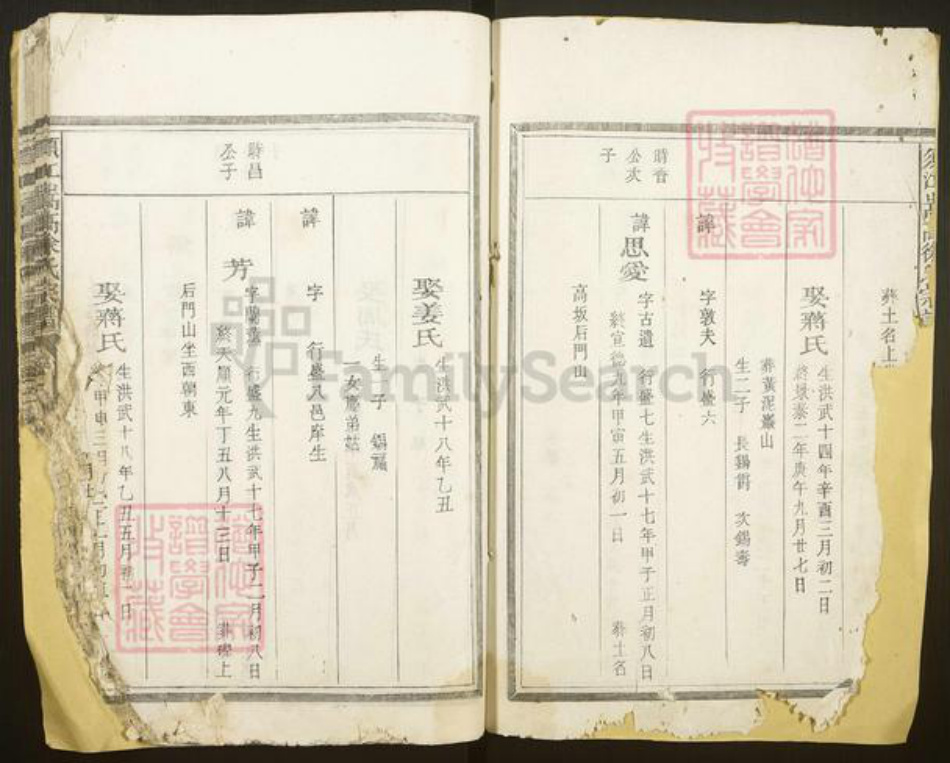 葬土名上
娶蔣氏
生洪武十四年辛酉三月初二日
終景泰二年庚午九月廿七日
葬黃泥巖山
生二子 長錫爵 次錫壽
諱
字敦夫 行盛六
時雍
公次
子
諱思愛
字古遺 行盛七生洪武十七年甲子正月初八日
終宣德九年甲寅五月初一日 葬土名
高坂后門山
娶姜氏
生洪武十八年乙丑
生一子 錫福
一女慶弟姑
諱
字 行盛八邑庠生
時昌
公子
諱芳
字蘭蓀 行盛九生洪武十七年甲子二月初八日
終天順元年丁丑八月十三日 葬碓上
后門山坐西朝東
娶蔣氏
生洪武十八年乙丑五月初一日
FamilySearch